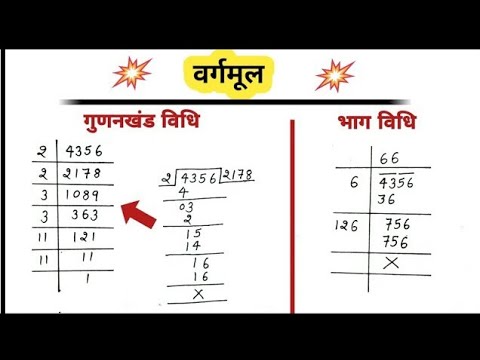 वर्गमूल
गुणनखंड विधि
2 4356
2 2178
3 1089
3 363
11 121
11 11
1
2 4356 2178
4
03
2
15
14
16
16
X
भाग विधि
66
6 4356
36
126 756
756
X